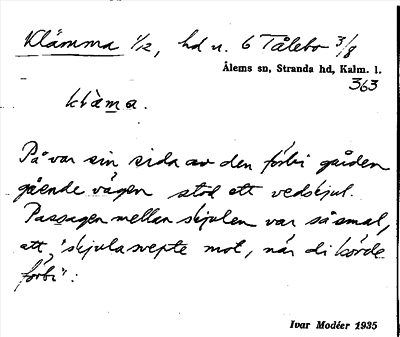 Klämma 1/12, hd u. 6 Tålebo 3/8
Ålems sn, Stranda hd, Kalm. l.
363
klä̀ma.
På var sin sida av den förbi gården
gående vägen stod ett vedskjul.
Passagen mellan skjulen var så smal,
att "skjula svepte mot, når di körde
förbi":
Ivar Modéer 1935